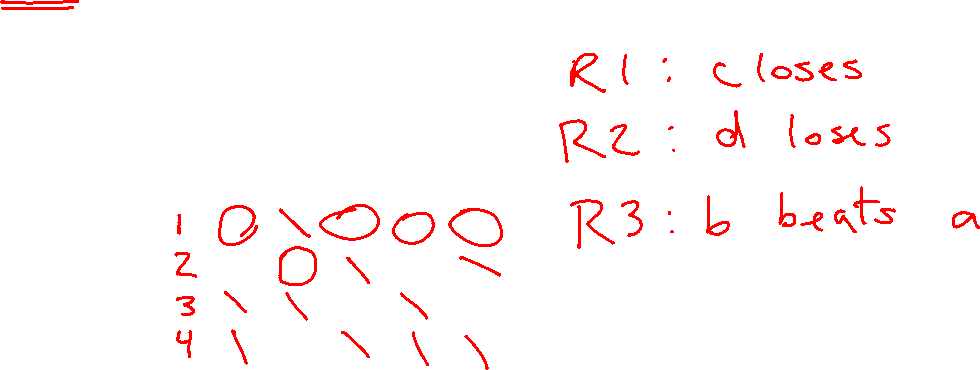 R1: c loses
R2: d loses
R3: b beats a
1 O \ O O O
2 O \ \
3 \ \ \
4 \ \ \ \